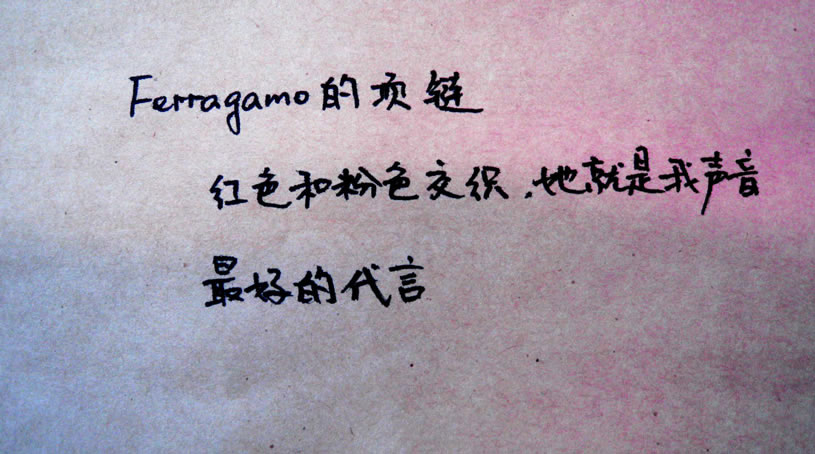 Ferragamo的项链
红色和粉色交织，她就是我声音
最好的代言